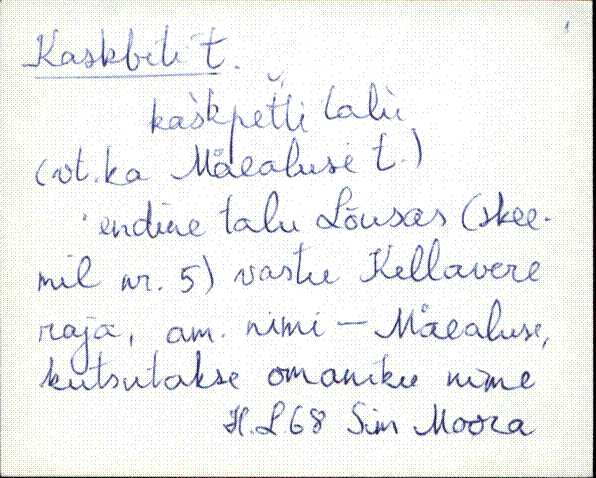 Kaskbeti t.
kaškpetti talu
(vt. ka Mäealuse t.)
endine talu Lõusas (skee-
mil nr. 5) vastu Kellavere
raja, am. nimi – Mäealuse,
kutsutakse omaniku nime
H. L 68 Sim Moora